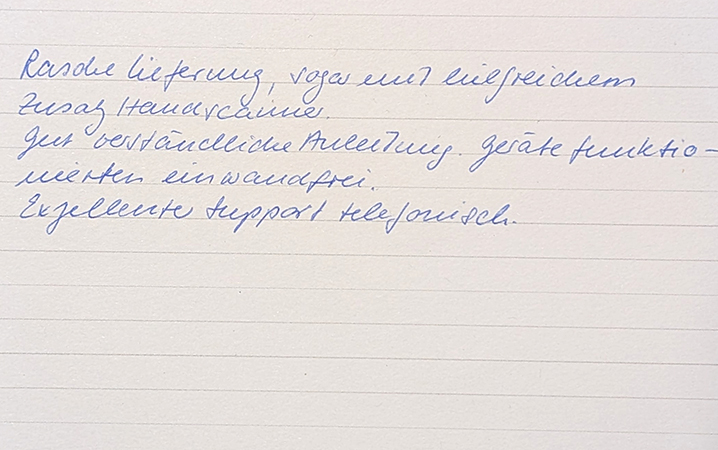 Rasche Lieferung, sogar mit hilfreichem
Zusatz Handscanner.
Gut verständliche Anleitung. Geräte funktio-
nierten einwandfrei.
Exzellenter Support telefonisch.